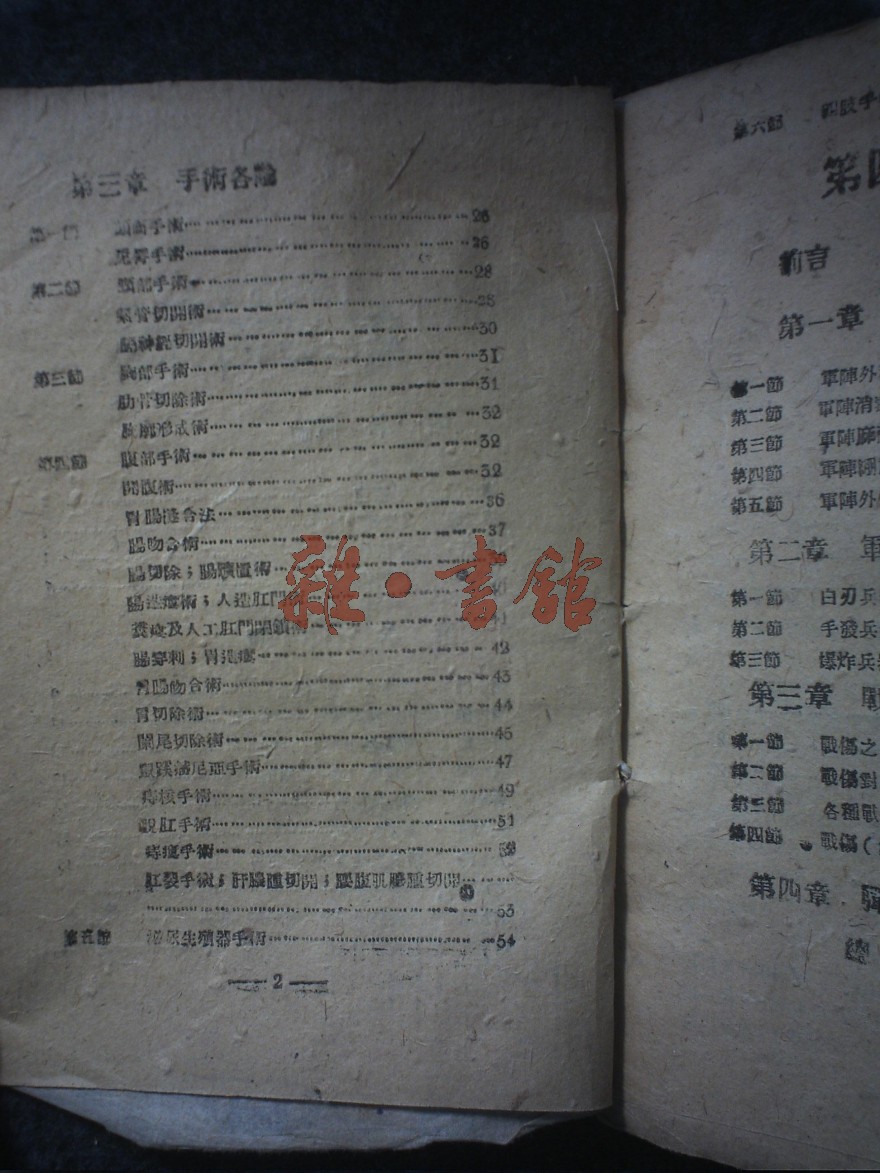 第三章 手術各論
第一節 頭面手術……26
兎唇手術……26
第二節 頸部手術……28
氣管切開術……28
膈神經切開術……30
第三節 胸部手術……31
肋骨切除術……31
胸廓形成術……32
第四節 腹部手術……32
開腹術……32
胃腸縫合法……36
腸吻合術……37
腸切除；腸
腸造瘻術；人造肛門
瘻及人工肛門閉鎖術……41
腸穿刺；胃造瘻……42
胃腸吻合術……43
胃切除術……44
闌尾切除術……45
手術……47
痔核手術……49
脫肛手術……51
痔瘻手術……52
肛裂手術；肝膿腫切開；腰腹肌膿腫切開……
……53
第五節 泌尿生殖器手術……54
2
第六節 四肢手
第四
前言
第一章
第一節 軍陣外
第二節 軍陣消
第三節 軍陣麻
第四節 軍陣
第五節 軍陣外
第二章 軍
第一節 白刃兵
第二節 手發兵
第三節 爆炸兵
第三章 戰
第一節 戰傷之
第二節 戰傷對
第三節 各種戰
第四節 戰傷（
第四章
總
雜·書館